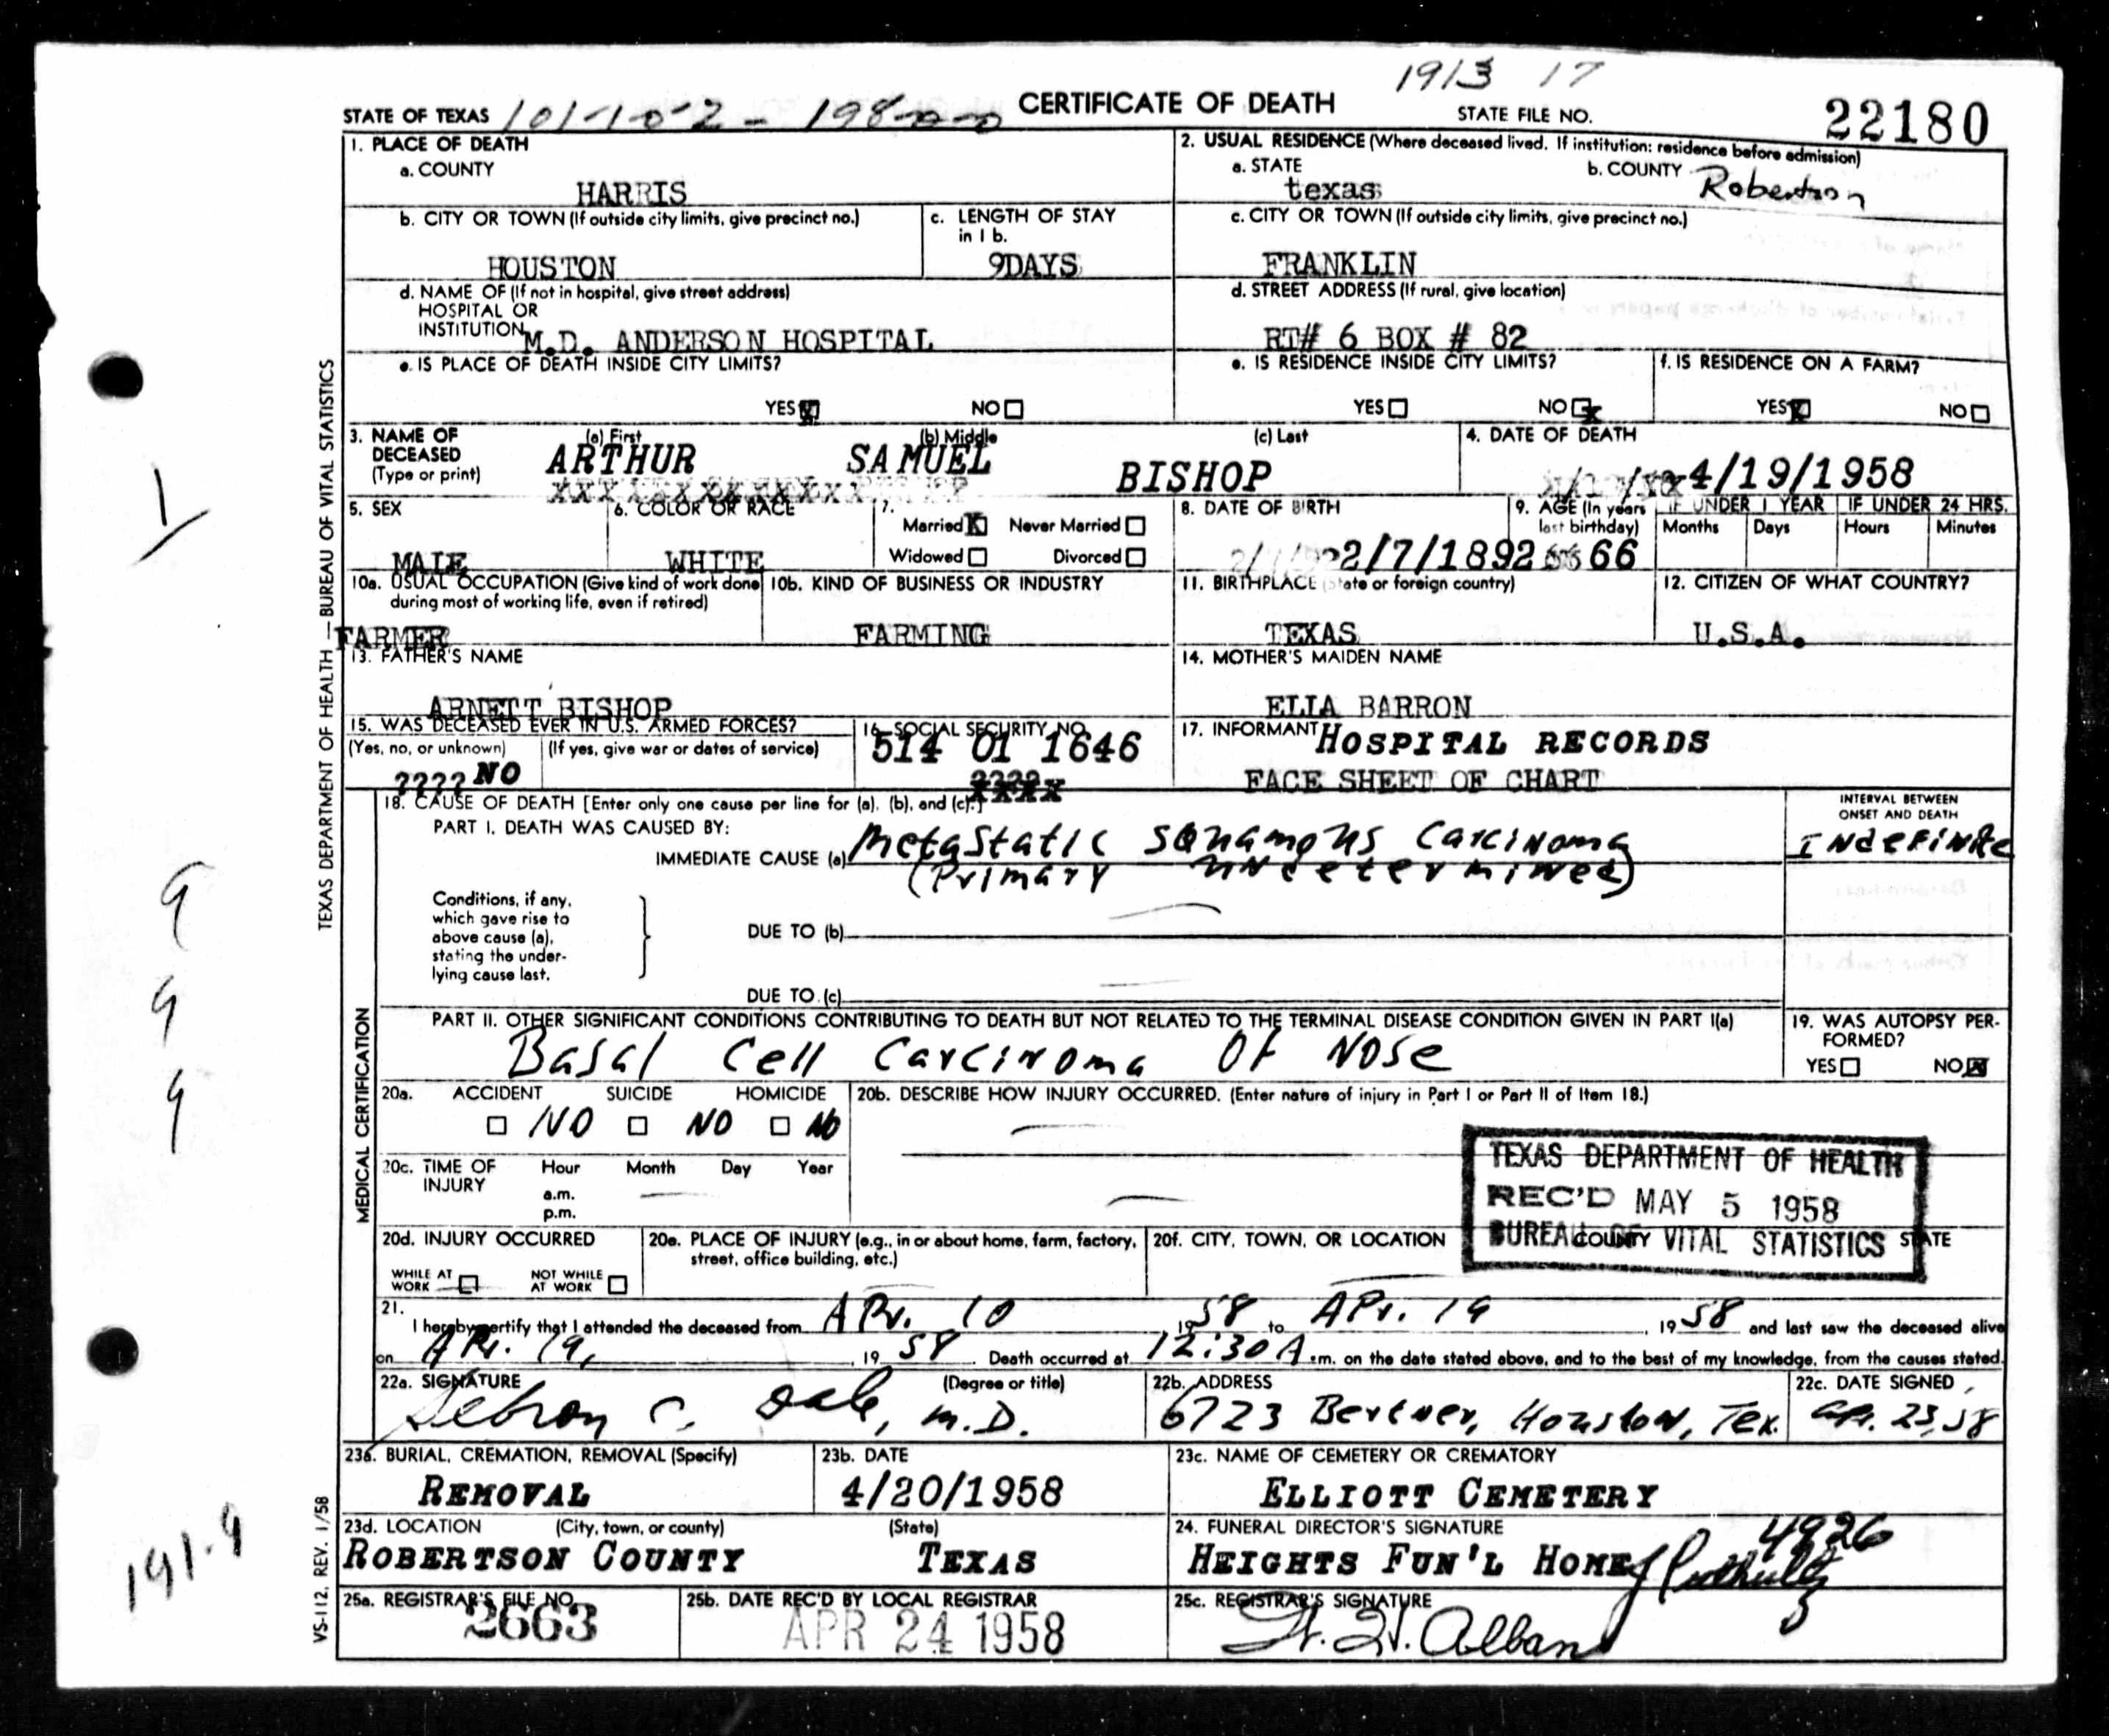 1913 17
STATE OF TEXAS 101-10-2 - 198
CERTIFICATE OF DEATH
STATE FILE NO. 22180
1. PLACE OF DEATH
a. COUNTY
HARRIS
2. USUAL RESIDENCE (Where deceased lived. If institution: residence before admission)
a. STATE
texas
b. COUNTY Robertson
b. CITY OR TOWN (If outside city limits, give precinct no.)
HOUSTON
c. LENGTH OF STAY
in 1 b.
9DAYS
c. CITY OR TOWN (If outside city limits, give precinct no.)
FRANKLIN
d. NAME OF (If not in hospital, give street address)
HOSPITAL OR
INSTITUTION M.D. ANDERSON HOSPITAL
d. STREET ADDRESS (If rural, give location)
RT# 6 BOX # 82
e. IS PLACE OF DEATH INSIDE CITY LIMITS?
YES X NO
e. IS RESIDENCE INSIDE CITY LIMITS?
YES NO X
f. IS RESIDENCE ON A FARM?
YES X NO
3. NAME OF
DECEASED
(Type or print)
(a) First
ARTHUR
(b) Middle
SAMUEL
(c) Last
BISHOP
4. DATE OF DEATH
4/19/1958
5. SEX
MALE
6. COLOR OR RACE
WHITE
7.
Married X Never Married
Widowed Divorced
8. DATE OF BIRTH
2/7/1892
9. AGE (In years
last birthday)
66
IF UNDER 1 YEAR
Months Days
IF UNDER 24 HRS.
Hours Minutes
10a. USUAL OCCUPATION (Give kind of work done
during most of working life, even if retired)
FARMER
10b. KIND OF BUSINESS OR INDUSTRY
FARMING
11. BIRTHPLACE (State or foreign country)
TEXAS
12. CITIZEN OF WHAT COUNTRY?
U.S.A.
13. FATHER'S NAME
ARNETT BISHOP
14. MOTHER'S MAIDEN NAME
ELLA BARRON
15. WAS DECEASED EVER IN U.S. ARMED FORCES?
(Yes, no, or unknown) (If yes, give war or dates of service)
???? NO
16. SOCIAL SECURITY NO.
514 01 1646
17. INFORMANT HOSPITAL RECORDS
FACE SHEET OF CHART
18. CAUSE OF DEATH [Enter only one cause per line for (a), (b), and (c).]
PART I. DEATH WAS CAUSED BY:
IMMEDIATE CAUSE (a) Metastatic Squamous Carcinoma
(Primary undetermined)
INTERVAL BETWEEN
ONSET AND DEATH
Indefinite
Conditions, if any,
which gave rise to
above cause (a),
stating the under-
lying cause last.
DUE TO (b)
DUE TO (c)
PART II. OTHER SIGNIFICANT CONDITIONS CONTRIBUTING TO DEATH BUT NOT RELATED TO THE TERMINAL DISEASE CONDITION GIVEN IN PART I(a)
Basal Cell Carcinoma Of Nose
19. WAS AUTOPSY PER-
FORMED?
YES NO X
20a. ACCIDENT SUICIDE HOMICIDE
NO NO NO
20b. DESCRIBE HOW INJURY OCCURRED. (Enter nature of injury in Part I or Part II of Item 18.)
20c. TIME OF
INJURY
Hour Month Day Year
a.m.
p.m.
TEXAS DEPARTMENT OF HEALTH
REC'D MAY 5 1958
BUREAU OF VITAL STATISTICS
20d. INJURY OCCURRED
WHILE AT
WORK
NOT WHILE
AT WORK
20e. PLACE OF INJURY (e.g., in or about home, farm, factory,
street, office building, etc.)
20f. CITY, TOWN, OR LOCATION COUNTY STATE
21.
I hereby certify that I attended the deceased from Apr. 10 1958 to Apr. 19, 1958 and last saw the deceased alive
on Apr. 19, 1958. Death occurred at 12:30 A.m. on the date stated above, and to the best of my knowledge, from the causes stated.
22a. SIGNATURE (Degree or title)
Sebron C. Dale, M.D.
22b. ADDRESS
6723 Bertner, Houston, Tex.
22c. DATE SIGNED
Apr. 23, 58
23a. BURIAL, CREMATION, REMOVAL (Specify)
REMOVAL
23b. DATE
4/20/1958
23c. NAME OF CEMETERY OR CREMATORY
ELLIOTT CEMETERY
23d. LOCATION (City, town, or county) (State)
ROBERTSON COUNTY TEXAS
24. FUNERAL DIRECTOR'S SIGNATURE
4926
HEIGHTS FUN'L HOME
25a. REGISTRAR'S FILE NO.
2663
25b. DATE REC'D BY LOCAL REGISTRAR
APR 24 1958
25c. REGISTRAR'S SIGNATURE
TEXAS DEPARTMENT OF HEALTH — BUREAU OF VITAL STATISTICS
MEDICAL CERTIFICATION
VS-112, REV. 1/58
1
9
9
9
191.9